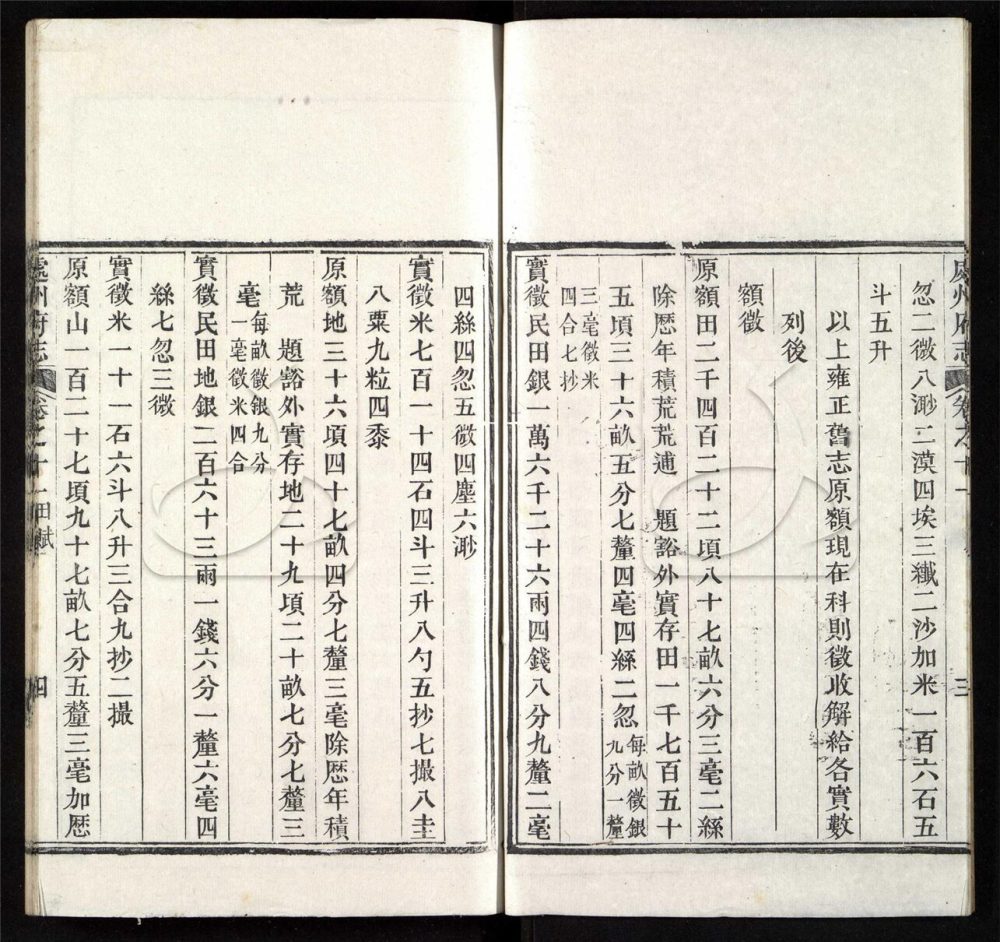 處州府志 卷之十一 三
忽二微八渺二漠四埃三纖二沙加米一百六石五
斗五升
以上雍正舊志原額現在科則徵收解給各實數
列後
額徵
原額田二千四百二十二頃八十七畝六分三毫二絲
除歷年積荒荒逋 題豁外實存田一千七百五十
五頃三十六畝五分七釐四毫四絲二忽每畝徵銀
九分一釐
三毫徵米
四合七抄
實徵民田銀一萬六千二十六兩四錢八分九釐二毫
四絲四忽五微四塵六渺
實徵米七百一十四石四斗三升八勺五抄七撮八圭
八粟九粒四黍
原額地三十六頃四十七畝四分七釐三毫除歷年積
荒 題豁外實存地二十九頃二十畝七分七釐三
毫每畝徵銀九分
一毫徵米四合
實徵民田地銀二百六十三兩一錢六分一釐六毫四
絲七忽三微
實徵米一十一石六斗八升三合九抄二撮
原額山一百二十七頃九十七畝七分五釐三毫加歷
處州府志 卷之十一 田賦 四